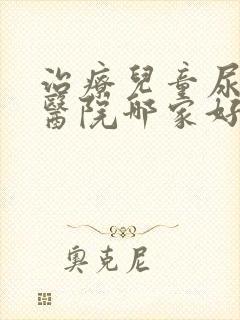 治療兒童尿
醫院哪家好
奧克尼